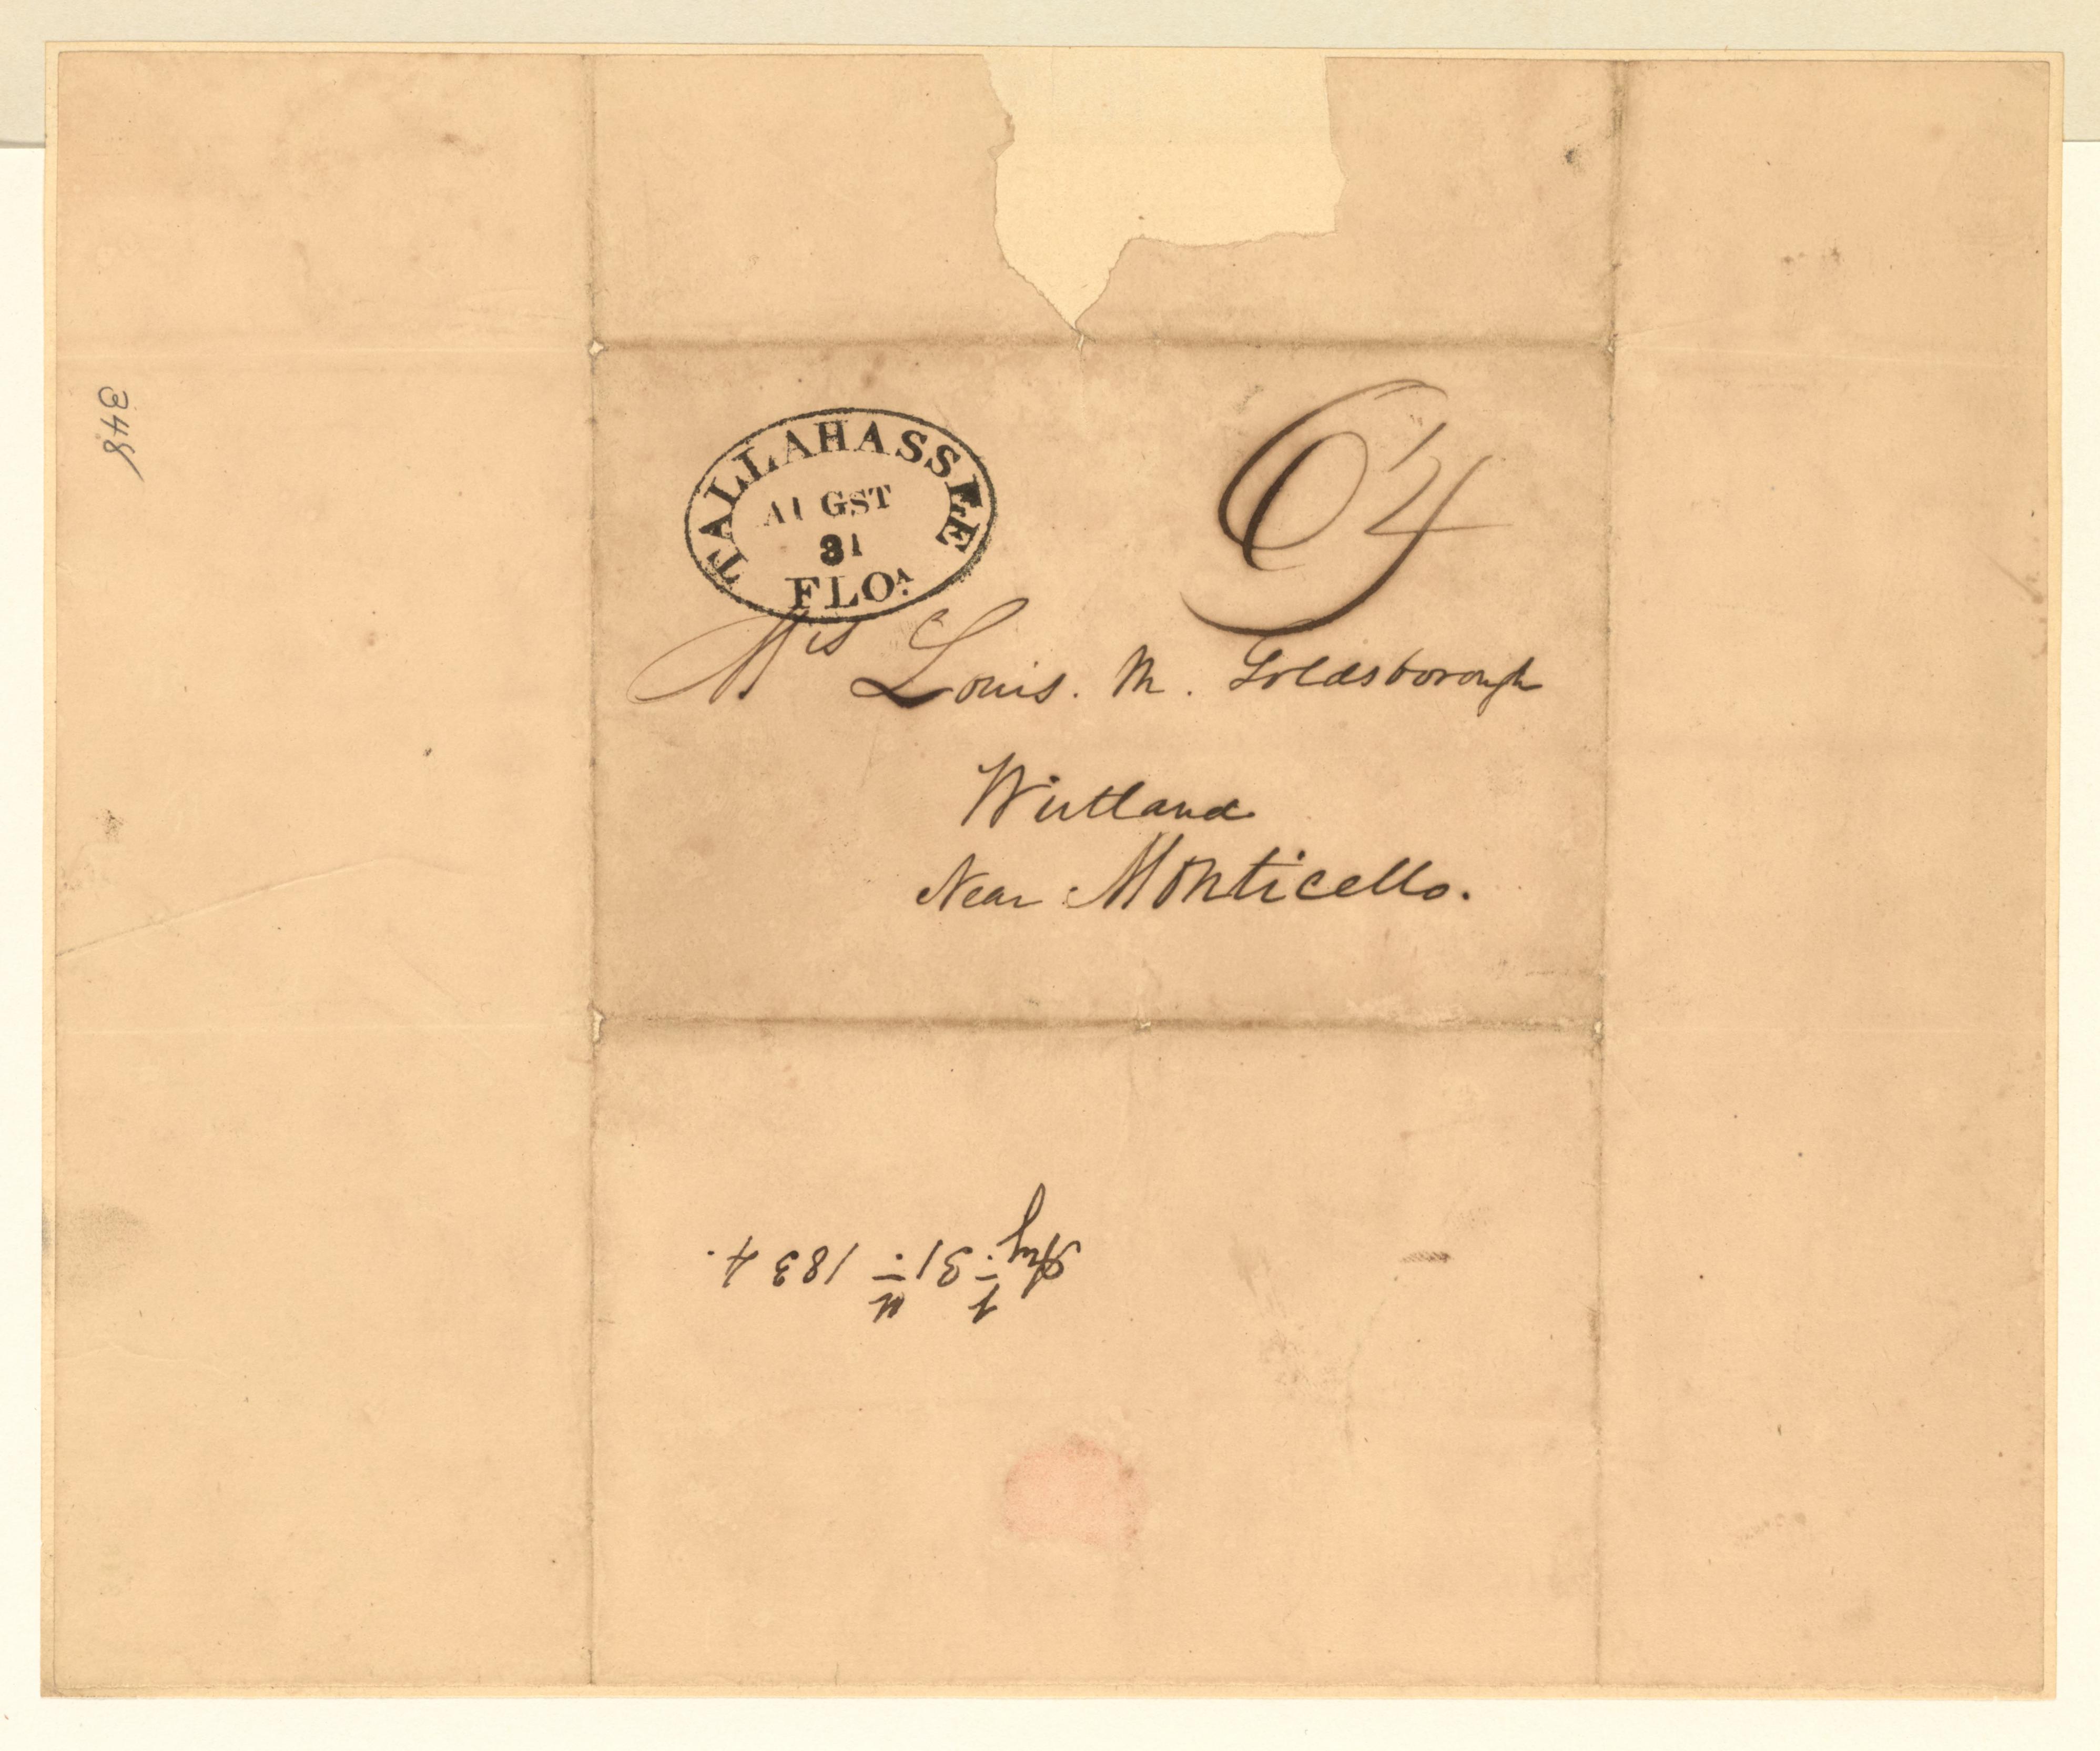 TALLAHASSEE
AUGST
31
FLOA.
6 1/4
Mrs Louis. M. Goldsborough
Wirtland
Near Monticello.
Augt. 31n. 1834.
348